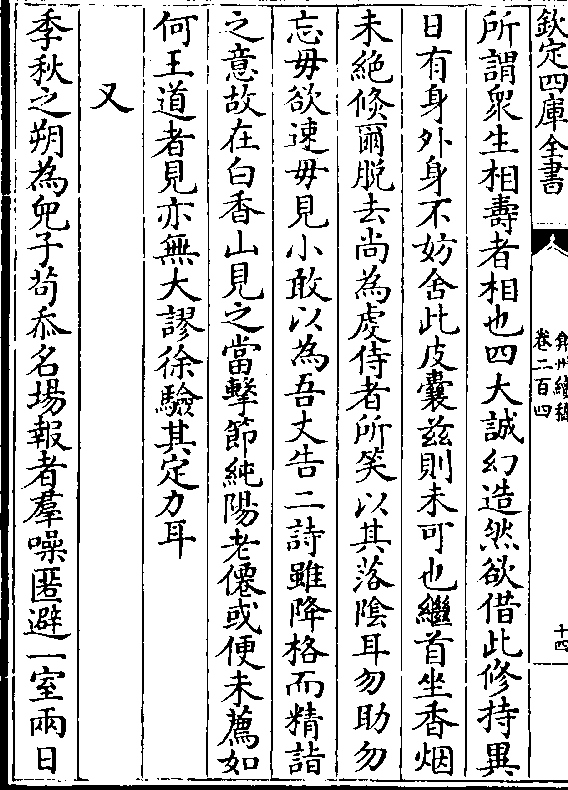 欽定四庫全書
弇州續稿
卷二百四
十四
所謂衆生相壽者相也四大誠幻造然欲借此修持異
日有身外身不妨舍此皮囊兹則未可也繼首坐香烟
未絶倐爾脱去尚為虔侍者所笑以其落隂耳勿助勿
忘毋欲速毋見小敢以為吾丈告二詩雖降格而精詣
之意故在白香山見之當擊節純陽老僊或便未薦如
何王道者見亦無大謬徐驗其定力耳
又
季秋之朔為兒子苟忝名場報者羣噪匿避一室兩日